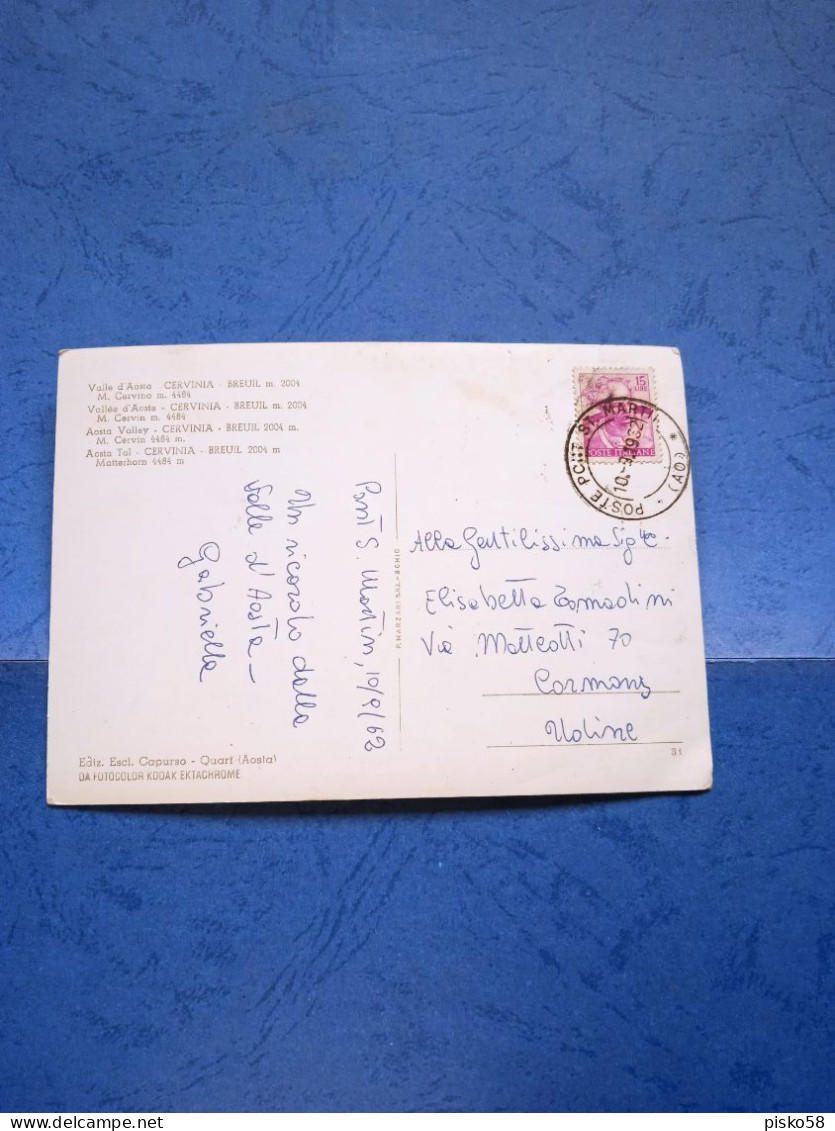 Valle d'Aosta - CERVINIA - BREUIL m. 2004
M. Cervino m. 4484
Vallée d'Aoste - CERVINIA - BREUIL m. 2004
M. Cervin m. 4484
Aosta Valley - CERVINIA - BREUIL 2004 m.
M. Cervin 4484 m.
Aosta Tal - CERVINIA - BREUIL 2004 m
Matterhorn 4484 m
15
LIRE
POSTE ITALIANE
POSTE PONT ST. MARTIN
(AO)
Pont S. Martin, 10/9/62
Un ricordo dalla
Valle d'Aosta -
Gabriella
P. MARZARI S.R.L. - SCHIO
Alla Gentilissima
Elisabetta
Via Matteotti 70
Cormons
Udine
Ediz. Escl. Capurso - Quart (Aosta)
DA FOTOCOLOR KODAK EKTACHROME
31
delcampe.net
pisko58